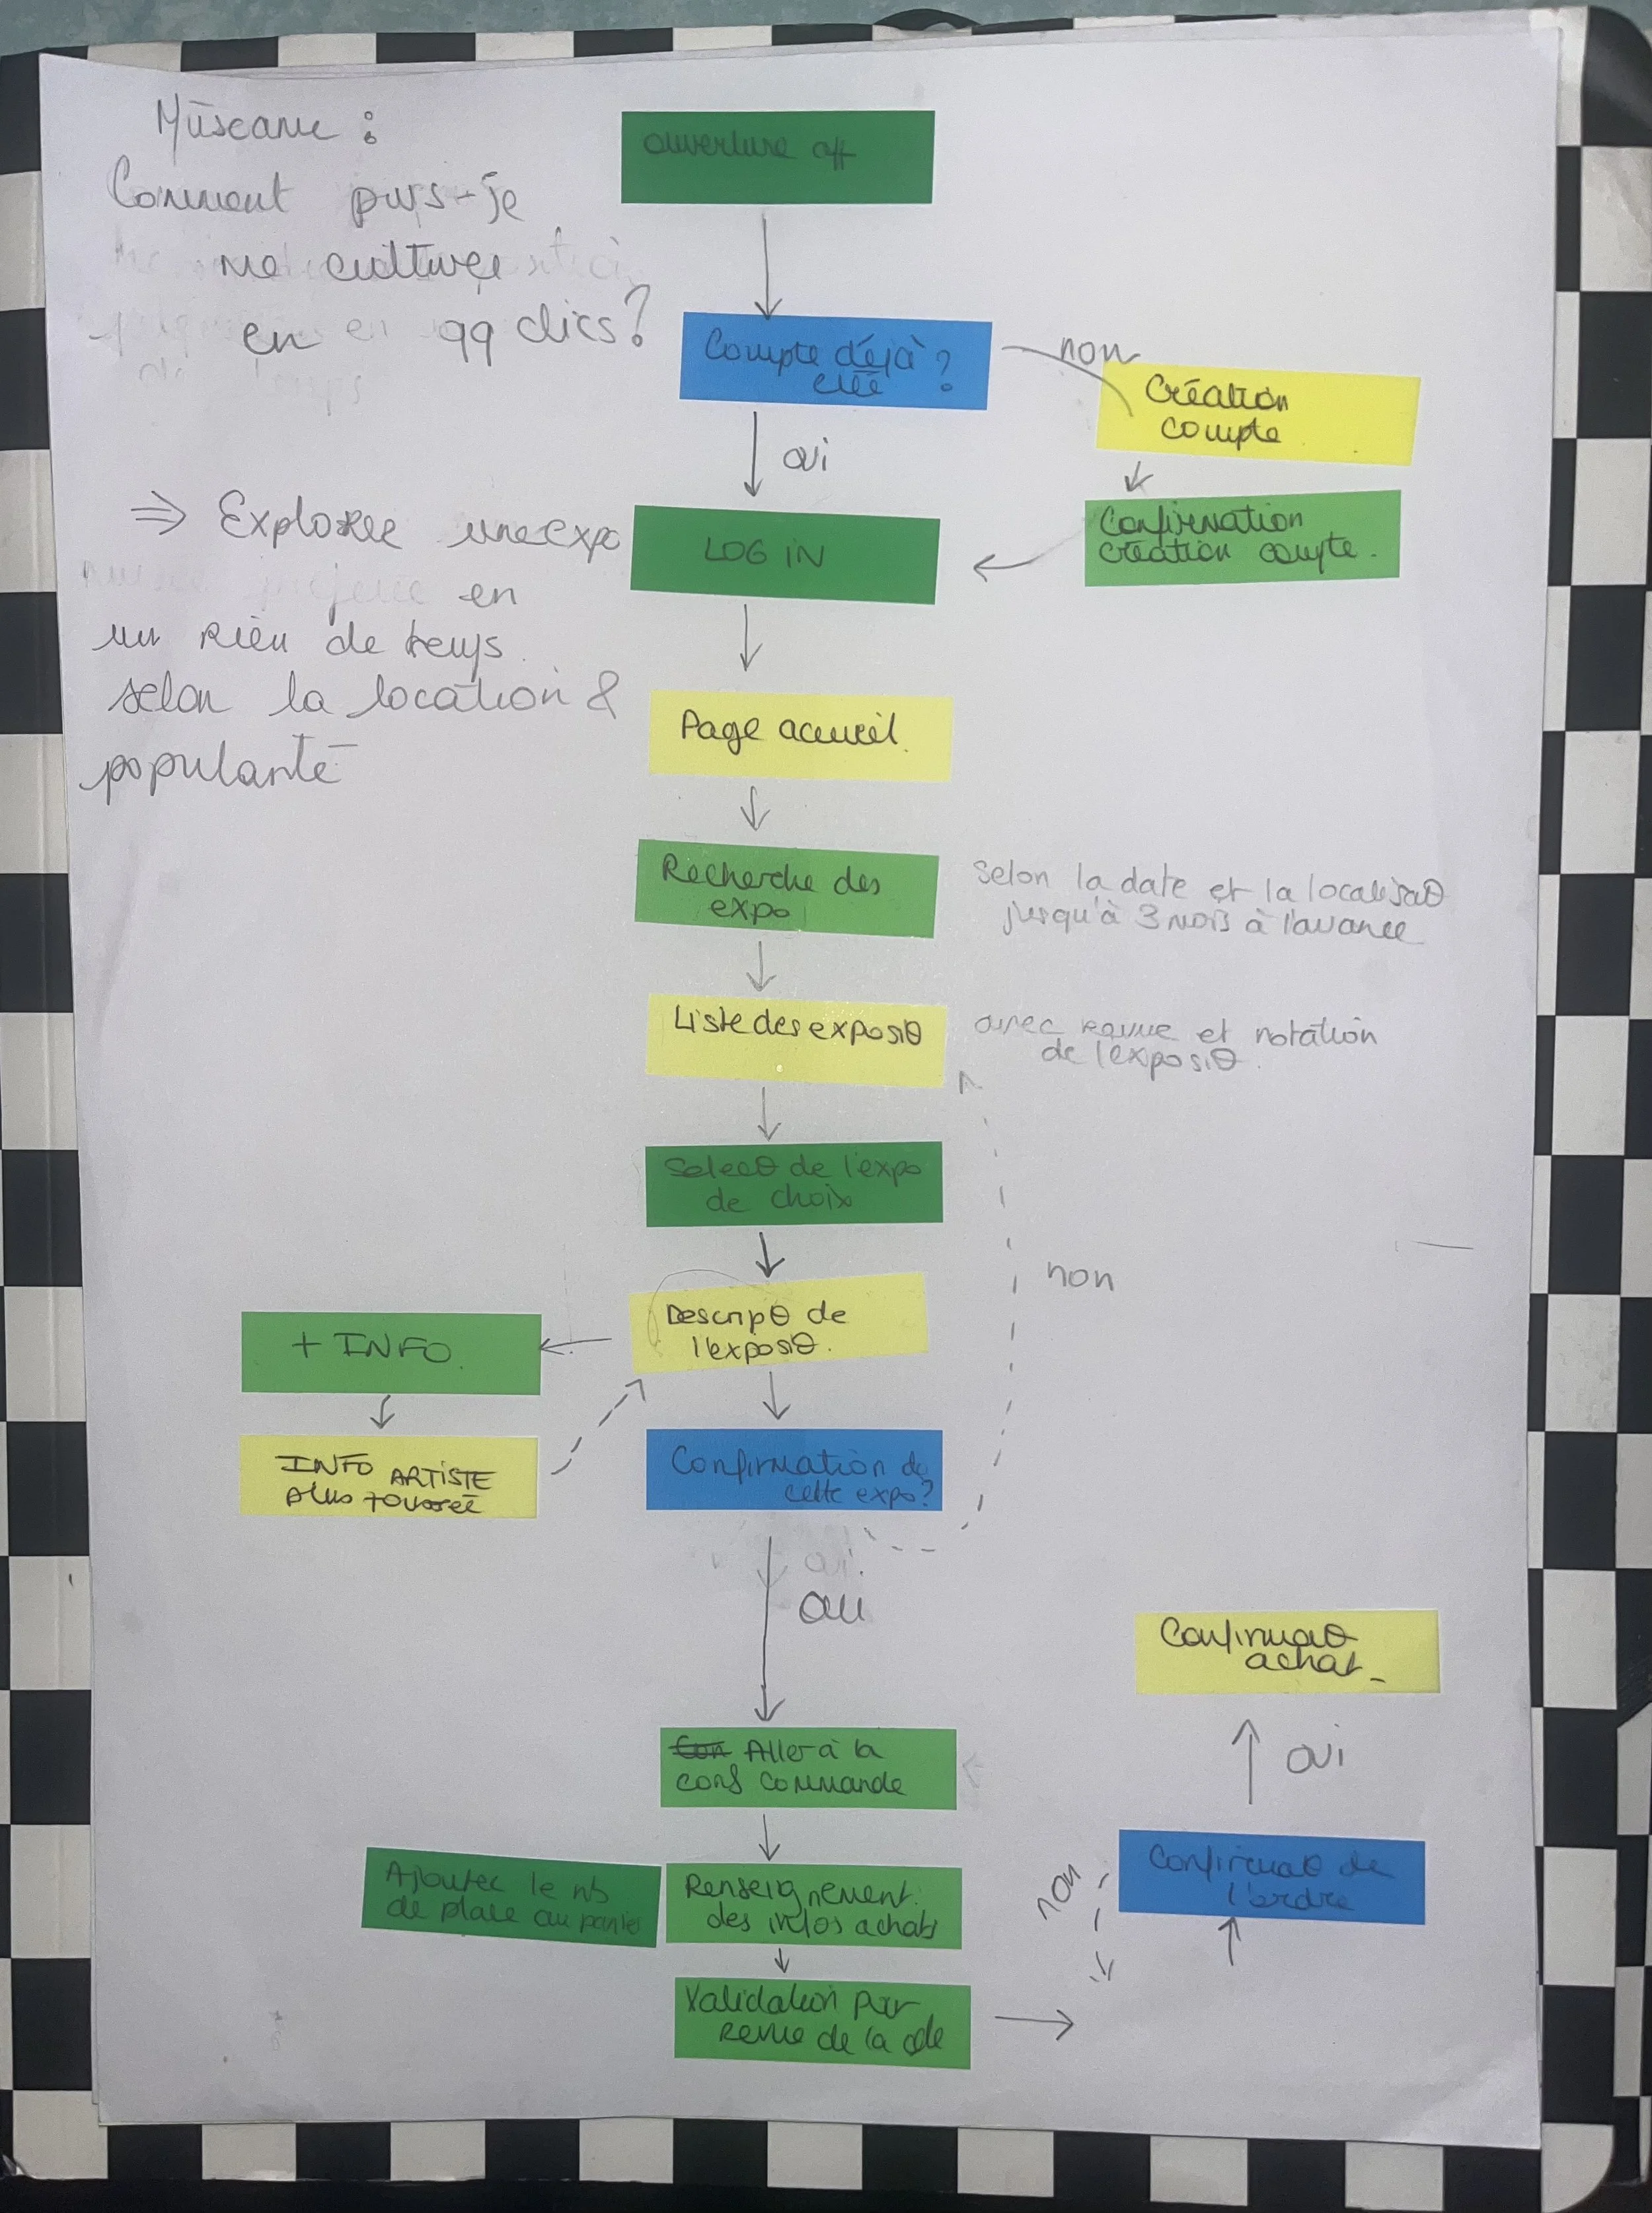 Müseame :
Comment puis-je
me cultiver
en qq clics?
⇒ Explorer une expo
en
un rien de temps
selon la location &
popularité
ouverture app
Compte déjà ?
créé
non
Création
compte
oui
Confirmation
création compte.
LOG IN
Page acueil.
Recherche des
expo
Selon la date et la localisaθ
jusqu'à 3 mois à l'avance
Liste des exposiθ
avec revue et notation
de l'exposiθ.
Selecθ de l'expo
de choix
non
Descripθ de
l'exposiθ.
+ INFO.
INFO ARTISTE
plus poussée
Confirmation de
cette expo?
oui.
oui
Confirmaθ
achat_
oui
Con Aller à la
conf commande
Confirmaθ de
l'ordre
non
Ajouter le nb
de place au panier
Renseignement
des infos achats
Validation par
revue de la cde